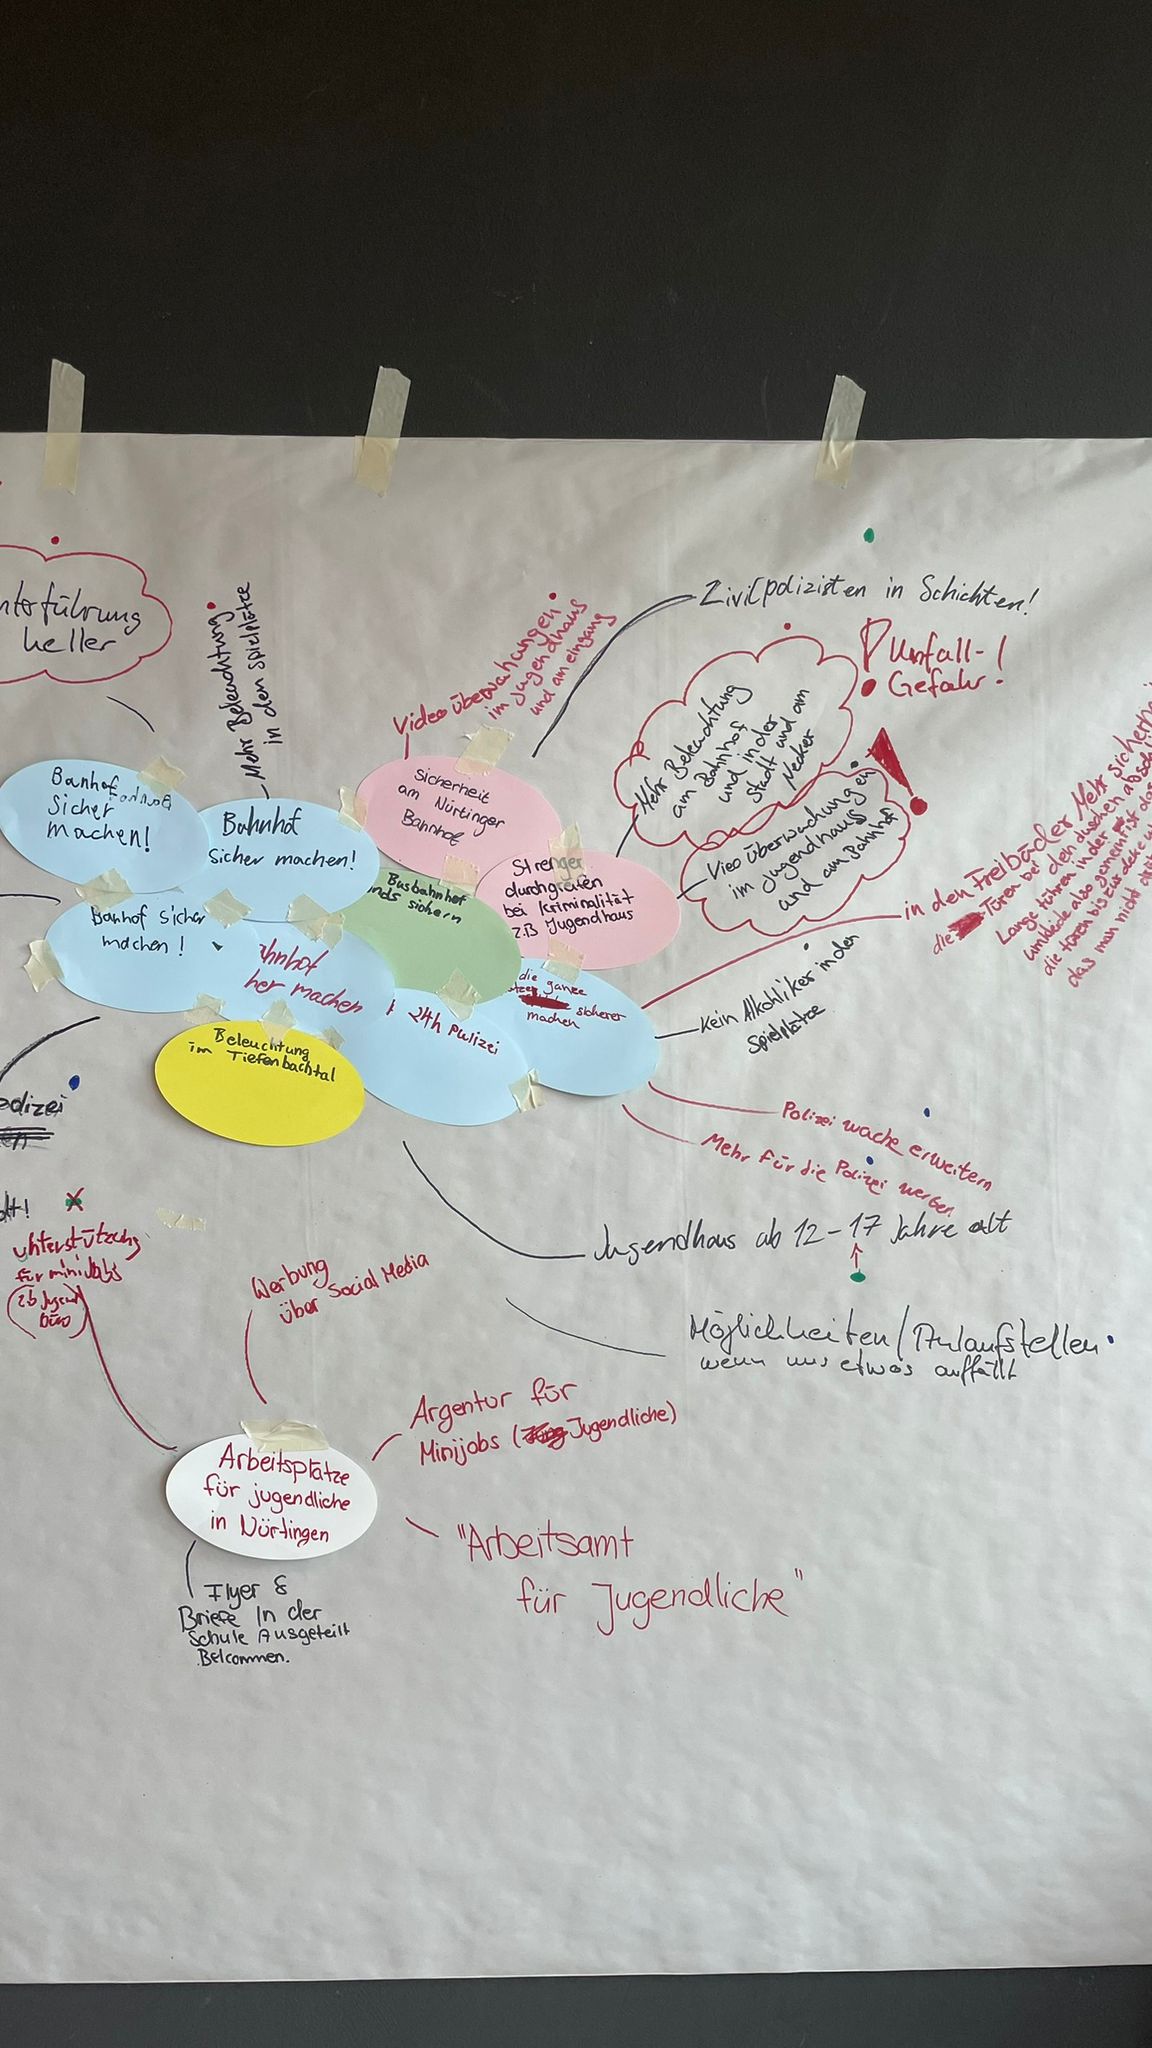 heller
Mehr Beleuchtung
in den Spielplätze
Video überwahungen
im Jugendhaus
und am eingang
Zivilpolizisten in Schichten!
Unfall-!
Gefahr!
Mehr Beleuchtung
am Bahnhof
und in der
Stadt und am
Neckar
Vieo überwachungen
im Jugendhaus
und am Bahnhof
Banhof
Sicher
machen!
Bahnhof
sicher machen!
Sicherheit
am Nürtinger
Bahnhof
Strenger
durchgreifen
bei Kriminalität
z.B Jugendhaus
Busbahnhof
sichern
Banhof Sicher
machen!
machen
die ganze
sicherer
machen
24h Pulizei
Beleuchtung
im Tiefenbachtal
in den Freibäder Mehr
die Türen bei den duschen
Lange türen in der
umkleide also gemeint ist
die türen bis zur decke
das man nicht
Kein Alkohliker in den
Spielplätze
Polizei wache erweitern
Mehr für die Polizei werben.
Jugendhaus ab 12-17 Jahre alt
Möglichkeiten/Anlaufstellen
wenn uns etwas auffällt
unterstützung
für minijobs
(z.b Jugend
büro)
Werbung
über Social Media
Argentur für
Minijobs (Jugendliche)
Arbeitsplätze
für jugendliche
in Nürtingen
"Arbeitsamt
für Jugendliche"
Flyer &
Briefe In der
Schule Ausgeteilt
Bekommen.